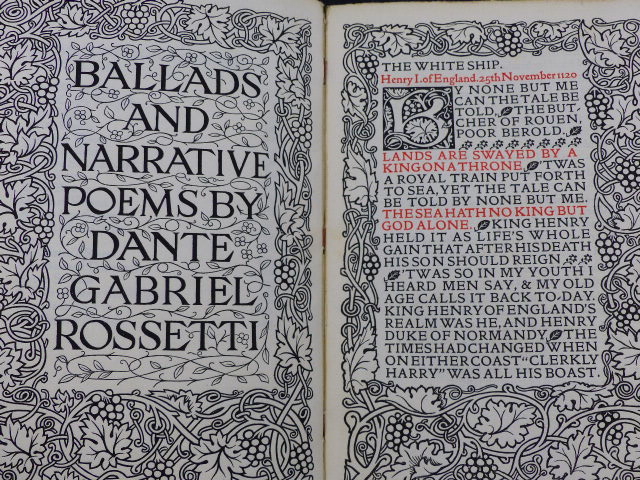 BALLADS
AND
NARRATIVE
POEMS BY
DANTE
GABRIEL
ROSSETTI
THE WHITE SHIP.
Henry I. of England. 25th November 1120
BY NONE BUT ME
CAN THE TALE BE
TOLD, THE BUT
CHER OF ROUEN,
POOR BEROLD.
LANDS ARE SWAYED BY A
KING ON A THRONE. 'TWAS
A ROYAL TRAIN PUT FORTH
TO SEA, YET THE TALE CAN
BE TOLD BY NONE BUT ME.
THE SEA HATH NO KING BUT
GOD ALONE. KING HENRY
HELD IT AS LIFE'S WHOLE
GAIN THAT AFTER HIS DEATH
HIS SON SHOULD REIGN.
'TWAS SO IN MY YOUTH I
HEARD MEN SAY, & MY OLD
AGE CALLS IT BACK TO-DAY.
KING HENRY OF ENGLAND'S
REALM WAS HE, AND HENRY
DUKE OF NORMANDY. THE
TIMES HAD CHANGED WHEN
ON EITHER COAST "CLERKLY
HARRY" WAS ALL HIS BOAST.